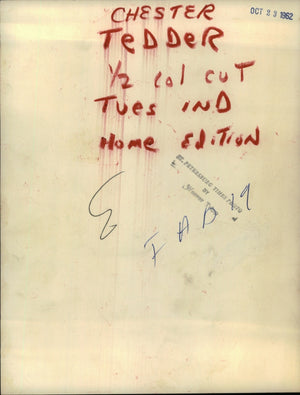 OCT 23 1962
CHESTER
TeDDeR
1/2 Col CUT
Tues iND
Home EDiTioN
ST. PETERSBURG TIMES PHOTO
BY
FAB 19